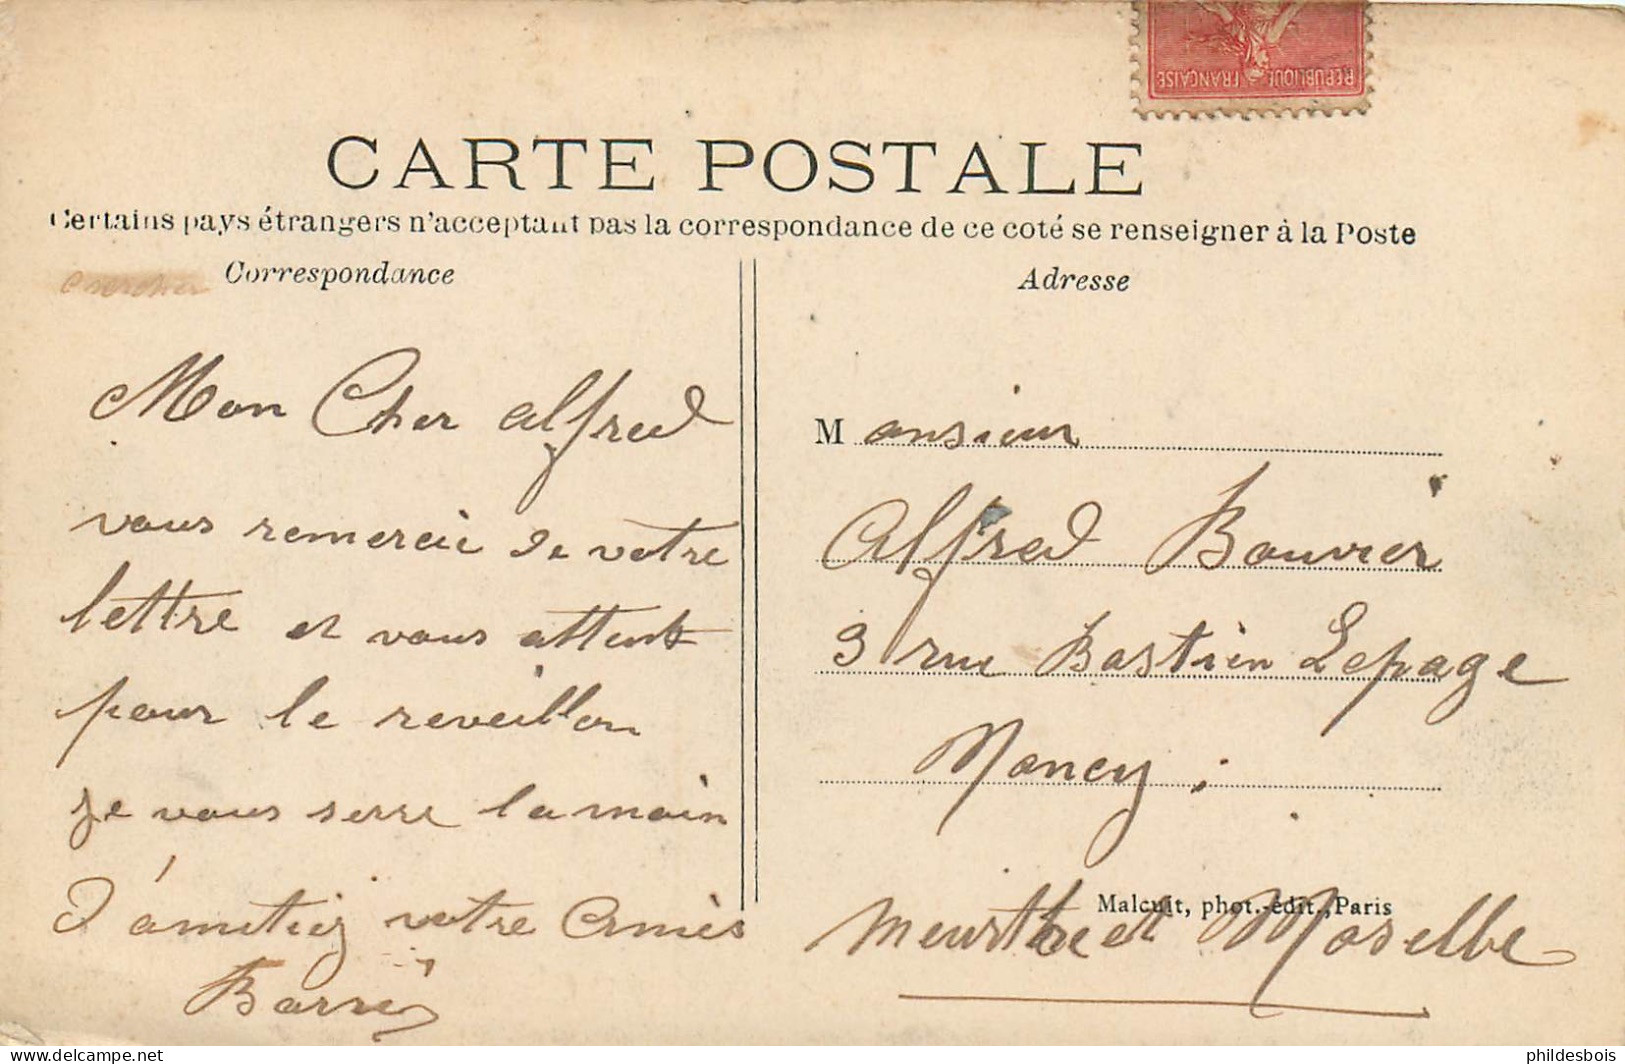 REPUBLIQUE FRANÇAISE
CARTE POSTALE
Certains pays étrangers n'acceptant pas la correspondance de ce coté se renseigner à la Poste
Correspondance
Adresse
Mon Cher Alfred
vous remercie de votre
lettre et vous attent
pour le reveillon
je vous serre la main
d'amitiez votre Amis
Barré
Monsieur
Alfred Bouvier
3 rue Bastien Lepage
Nancy
Malcuit, phot.-édit., Paris
Meurthe et Moselle
www.delcampe.net
phildesbois